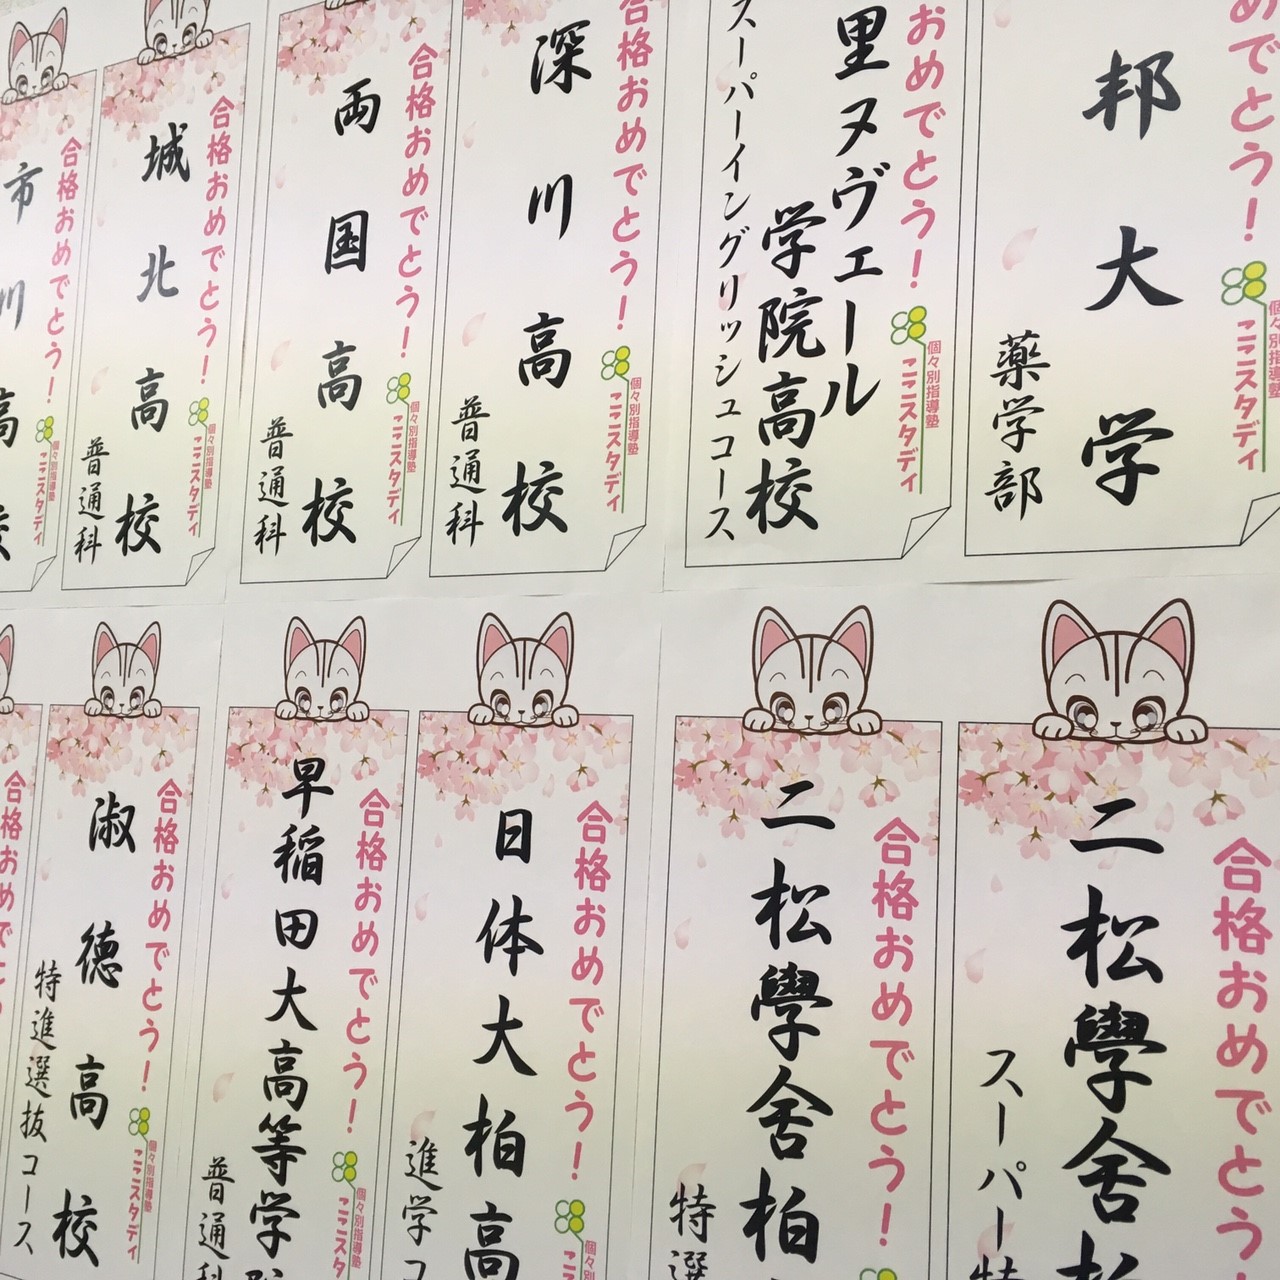 めでとう！
邦大学
薬学部
個々別指導塾
ここスタディ
おめでとう！
里ヌヴェール
学院高校
スーパーイングリッシュコース
個々別指導塾
ここスタディ
合格おめでとう！
深川高校
普通科
個々別指導塾
ここスタディ
合格おめでとう！
両国高校
普通科
個々別指導塾
ここスタディ
合格おめでとう！
城北高校
普通科
個々別指導塾
ここスタディ
合格おめでとう！
市川高校
個々別指導塾
ここスタディ
合格おめでとう
二松學舍
スーパー特
合格おめでとう！
二松學舍柏
特選
合格おめでとう！
日体大柏高
進学コ
個々
ここ
合格おめでとう！
早稲田大高等学院
普通科
個々別指
ここスタ
合格おめでとう！
淑徳高校
特進選抜コース
個々別指導塾
ここスタディ
合格おめでとう